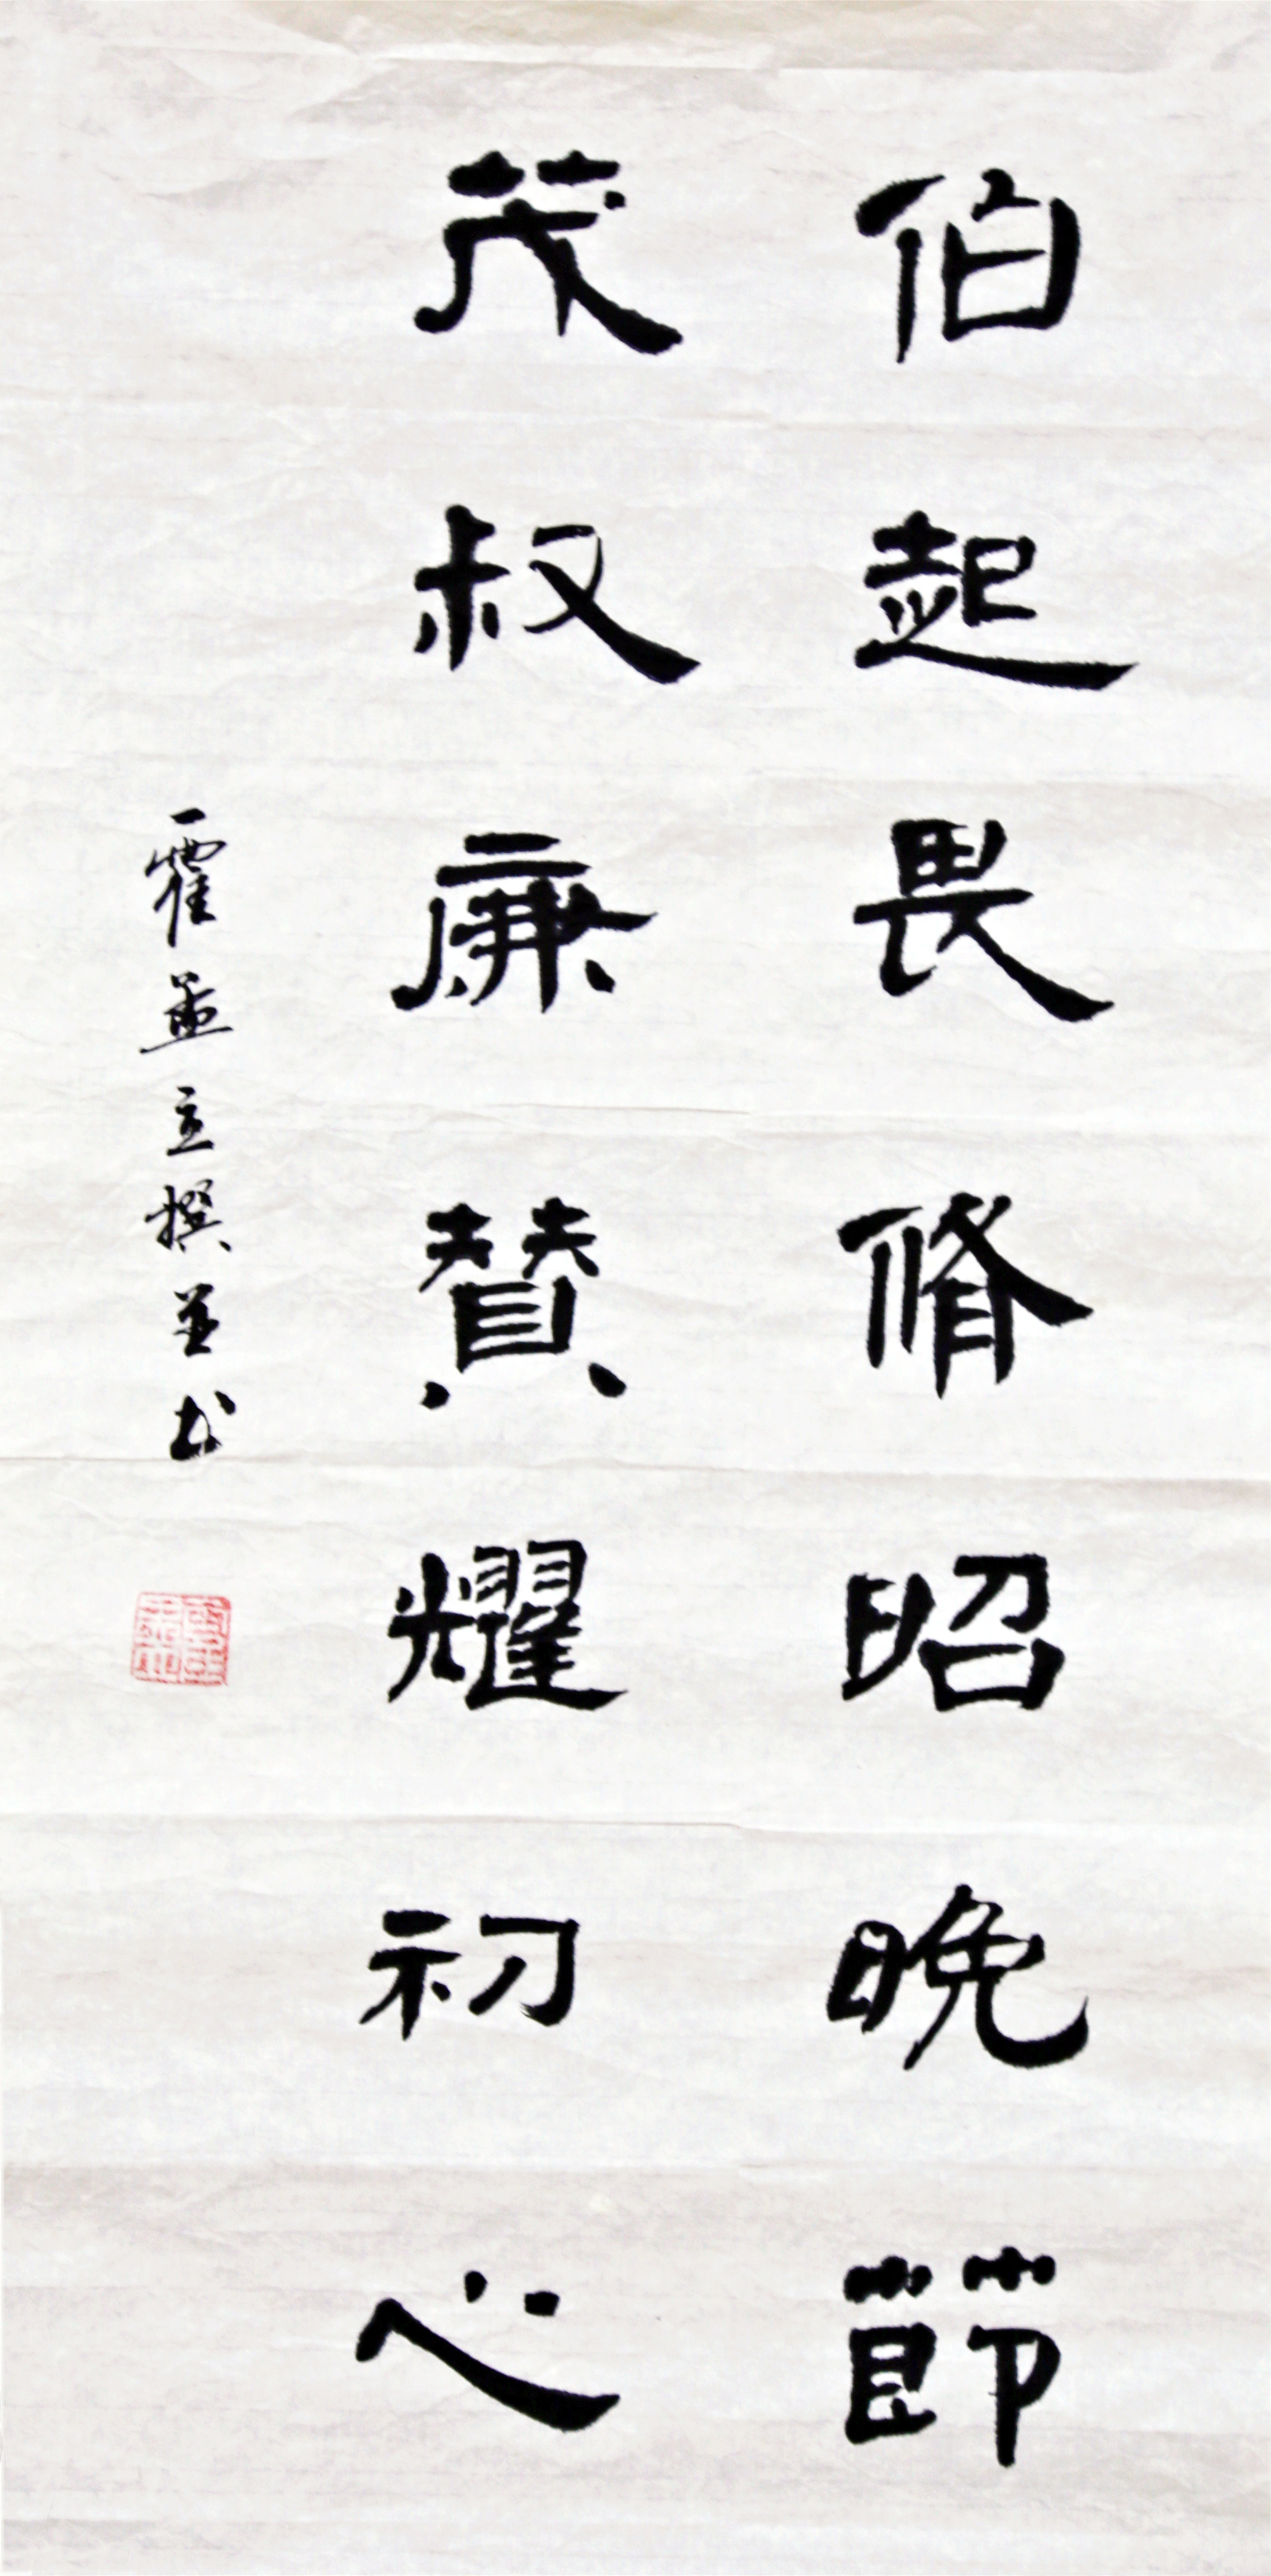 伯起畏脩昭晚節
茂叔廉賛耀初心
霍孟立撰並书